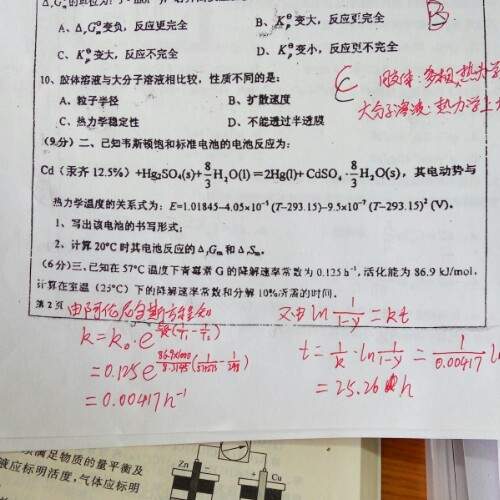 A、ΔrGm⊖变负，反应更完全
B、Kp⊖变大，反应更完全
B
C、Kp⊖变大，反应不完全
D、Kp⊖变小，反应更不完全
10、胶体溶液与大分子溶液相比较，性质不同的是：
C
胶体：多相，热力学
A、粒子半径
B、扩散速度
大分子溶液：热力学上
C、热力学稳定性
D、不能透过半透膜
(9分) 二、已知韦斯顿饱和标准电池的电池反应为：
Cd (汞齐 12.5%) +Hg₂SO₄(s)+8/3H₂O(l) =2Hg(l)+ CdSO₄·8/3H₂O(s)，其电动势与
热力学温度的关系式为：E=1.01845-4.05×10⁻⁵ (T-293.15)-9.5×10⁻⁷ (T-293.15)² (V)。
1、写出该电池的书写形式；
2、计算 20℃时其电池反应的ΔrGm 和ΔrSm。
(6分) 三、已知在 57℃温度下青霉素 G 的降解速率常数为 0.125 h⁻¹，活化能为 86.9 kJ/mol，
计算在室温（25℃）下的降解速率常数和分解 10%所需的时间。
第 2 页
由阿伦尼乌斯方程知
又由 ln 1/(1-y) = kt
k = k₀·e
t = 1/k · ln 1/(1-y) = 1/0.00417 ln
= 0.125 e
= 25.26 h
= 0.00417 h⁻¹
满足物质的量平衡及
液应标明活度，气体应标明
Zn
-
+
Cu